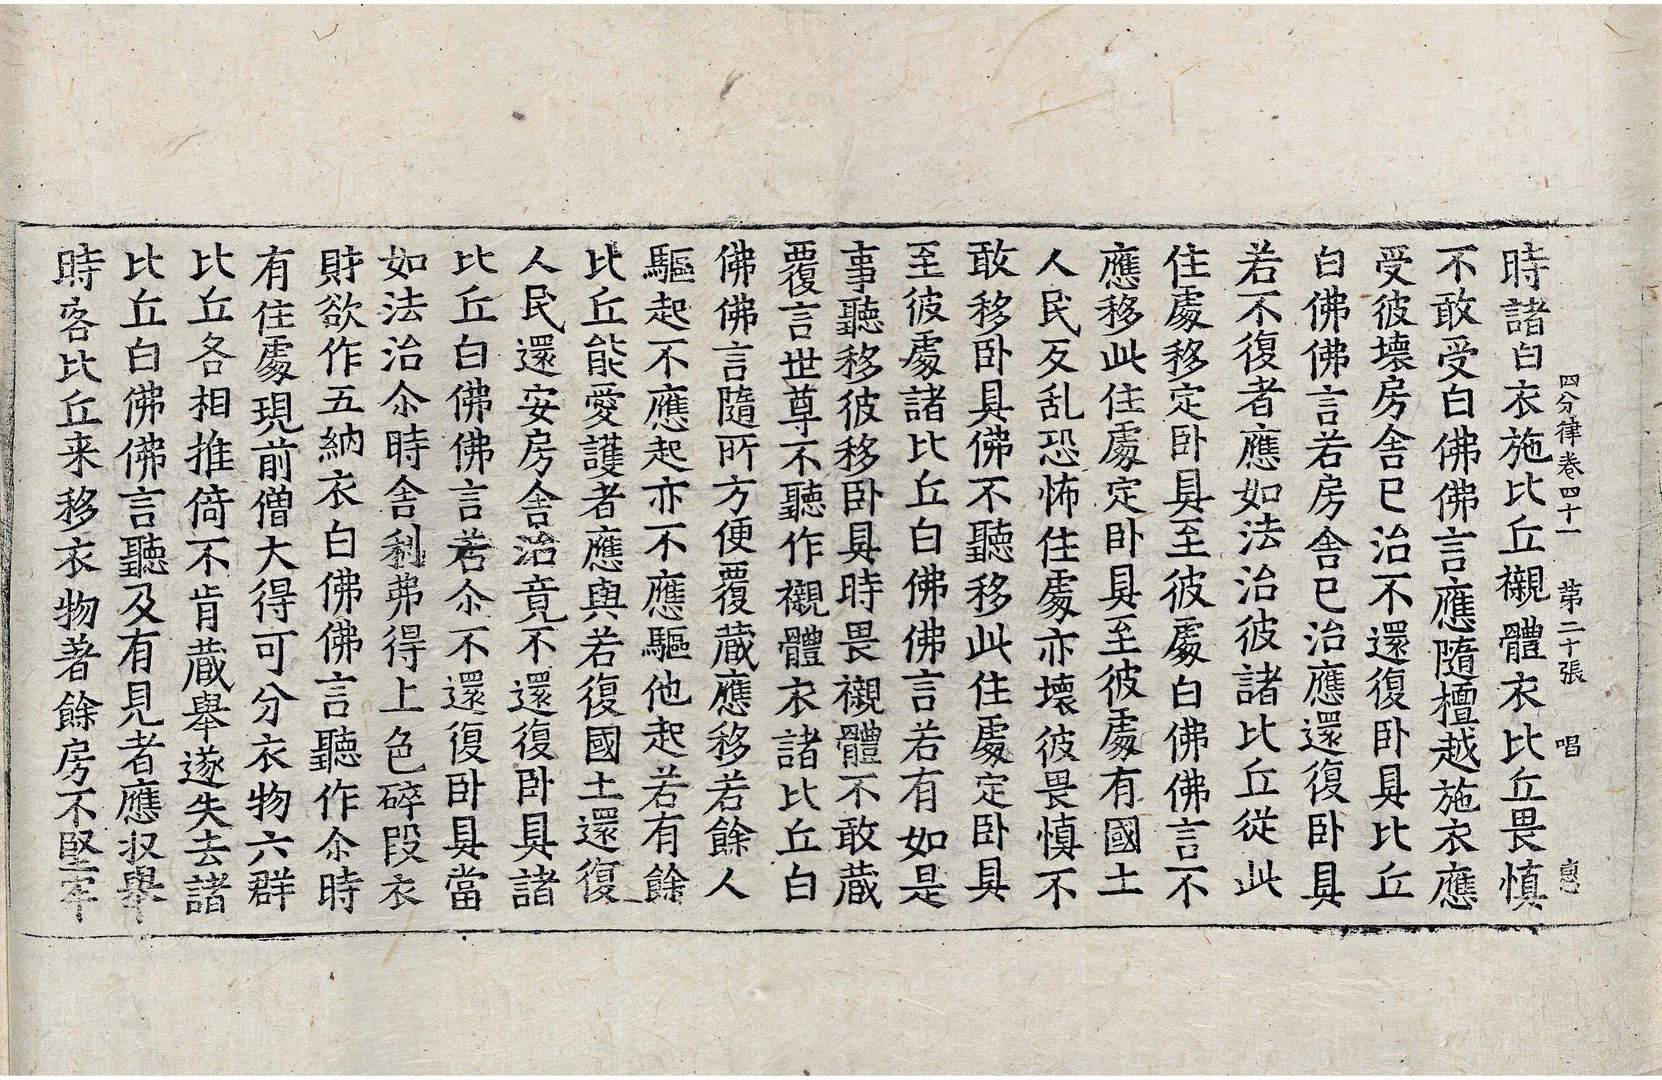 四分律卷四十一　第二十張　唱　惠
時諸白衣施比丘襯體衣比丘畏慎
不敢受白佛佛言應隨檀越施衣應
受彼壞房舍已治不還復卧具比丘
白佛佛言若房舍已治應還復卧具
若不復者應如法治彼諸比丘從此
住處移定卧具至彼處白佛佛言不
應移此住處定卧具至彼處有國土
人民反乱恐怖住處亦壞彼畏慎不
敢移卧具佛不聽移此住處定卧具
至彼處諸比丘白佛佛言若有如是
事聽移彼移卧具時畏襯體不敢蔵
覆言世尊不聽作襯體衣諸比丘白
佛佛言隨所方便覆蔵應移若餘人
驅起不應起亦不應驅他起若有餘
比丘能愛護者應與若復國土還復
人民還安房舍治竟不還復卧具諸
比丘白佛佛言若尒不還復卧具當
如法治尒時舍利弗得上色碎段衣
財欲作五納衣白佛佛言聽作尒時
有住處現前僧大得可分衣物六群
比丘各相推倚不肯蔵舉遂失去諸
比丘白佛佛言聽及有見者應収舉
時客比丘来移衣物著餘房不堅牢